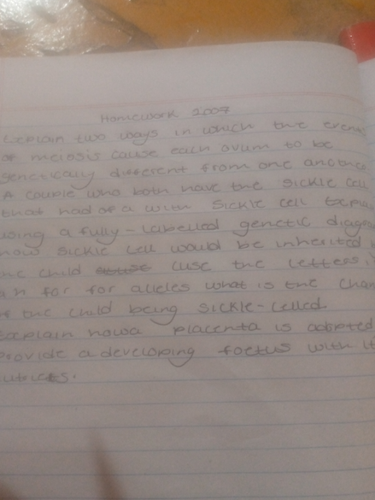 Homework 2007
Explain two ways in which the events
of meiosis cause each ovum to be
genetically different from one another
A couple who both have the sickle cell
that had of a with sickle cell Explain
using a fully-labelled genetic diagram
how sickle cell would be inherited
the child (use the letters
for for alleles what is the chan
of the child being sickle-celled.
Explain howa placenta is adopted
provide a developing foetus with it